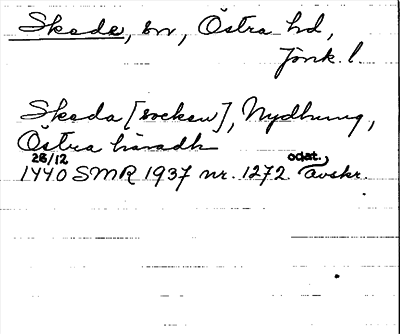 Skede, sn, Östra hd,
Jönk. l.
Skeda [socken], Nydhung,
Östra häradh
28/12 odat.
1440 SMR 1937 nr. 1272 avskr.